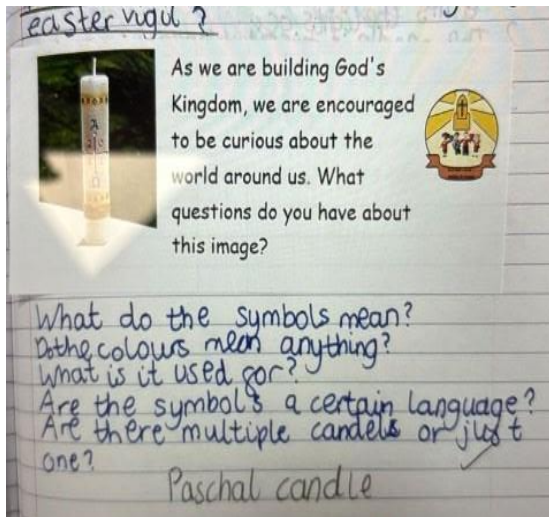 easter vigil?
As we are building God's
Kingdom, we are encouraged
to be curious about the
world around us. What
questions do you have about
this image?
What do the symbols mean?
Do the colours mean anything?
What is it used for?
Are the symbols a certain language?
Are there multiple candels or just
one?
Paschal candle